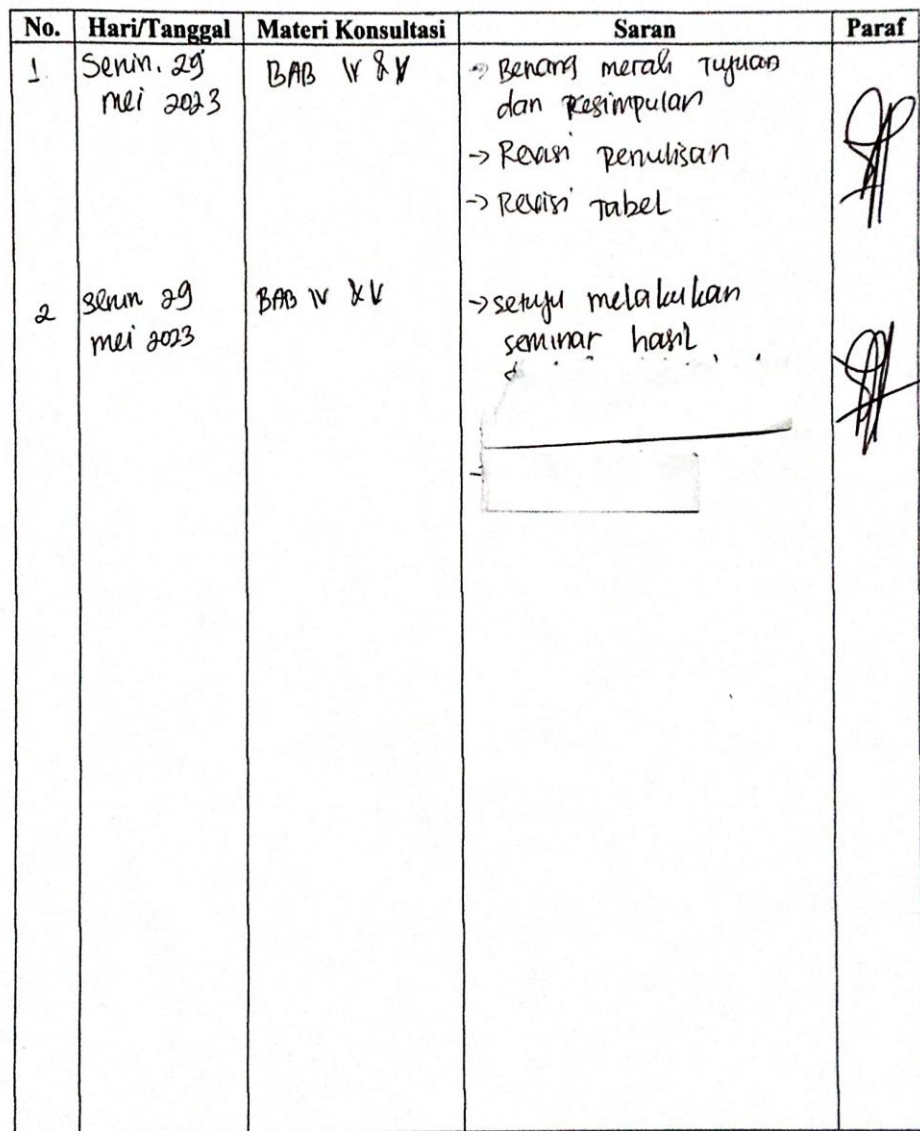 No. Hari/Tanggal Materi Konsultasi Saran Paraf
1. Senin, 29 BAB IV & V -> Benang merah Tujuan
mei 2023 dan Kesimpulan
-> Revisi Penulisan
-> Revisi Tabel
2 Senin 29 BAB IV & V -> setuju melakukan
mei 2023 seminar hasil